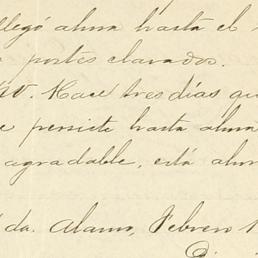 llegó ahora hasta el
postes clavados.
Hace tres días qu
e persiste hasta ahora
agradable, está ahor
da. Alamo, Febrero 1